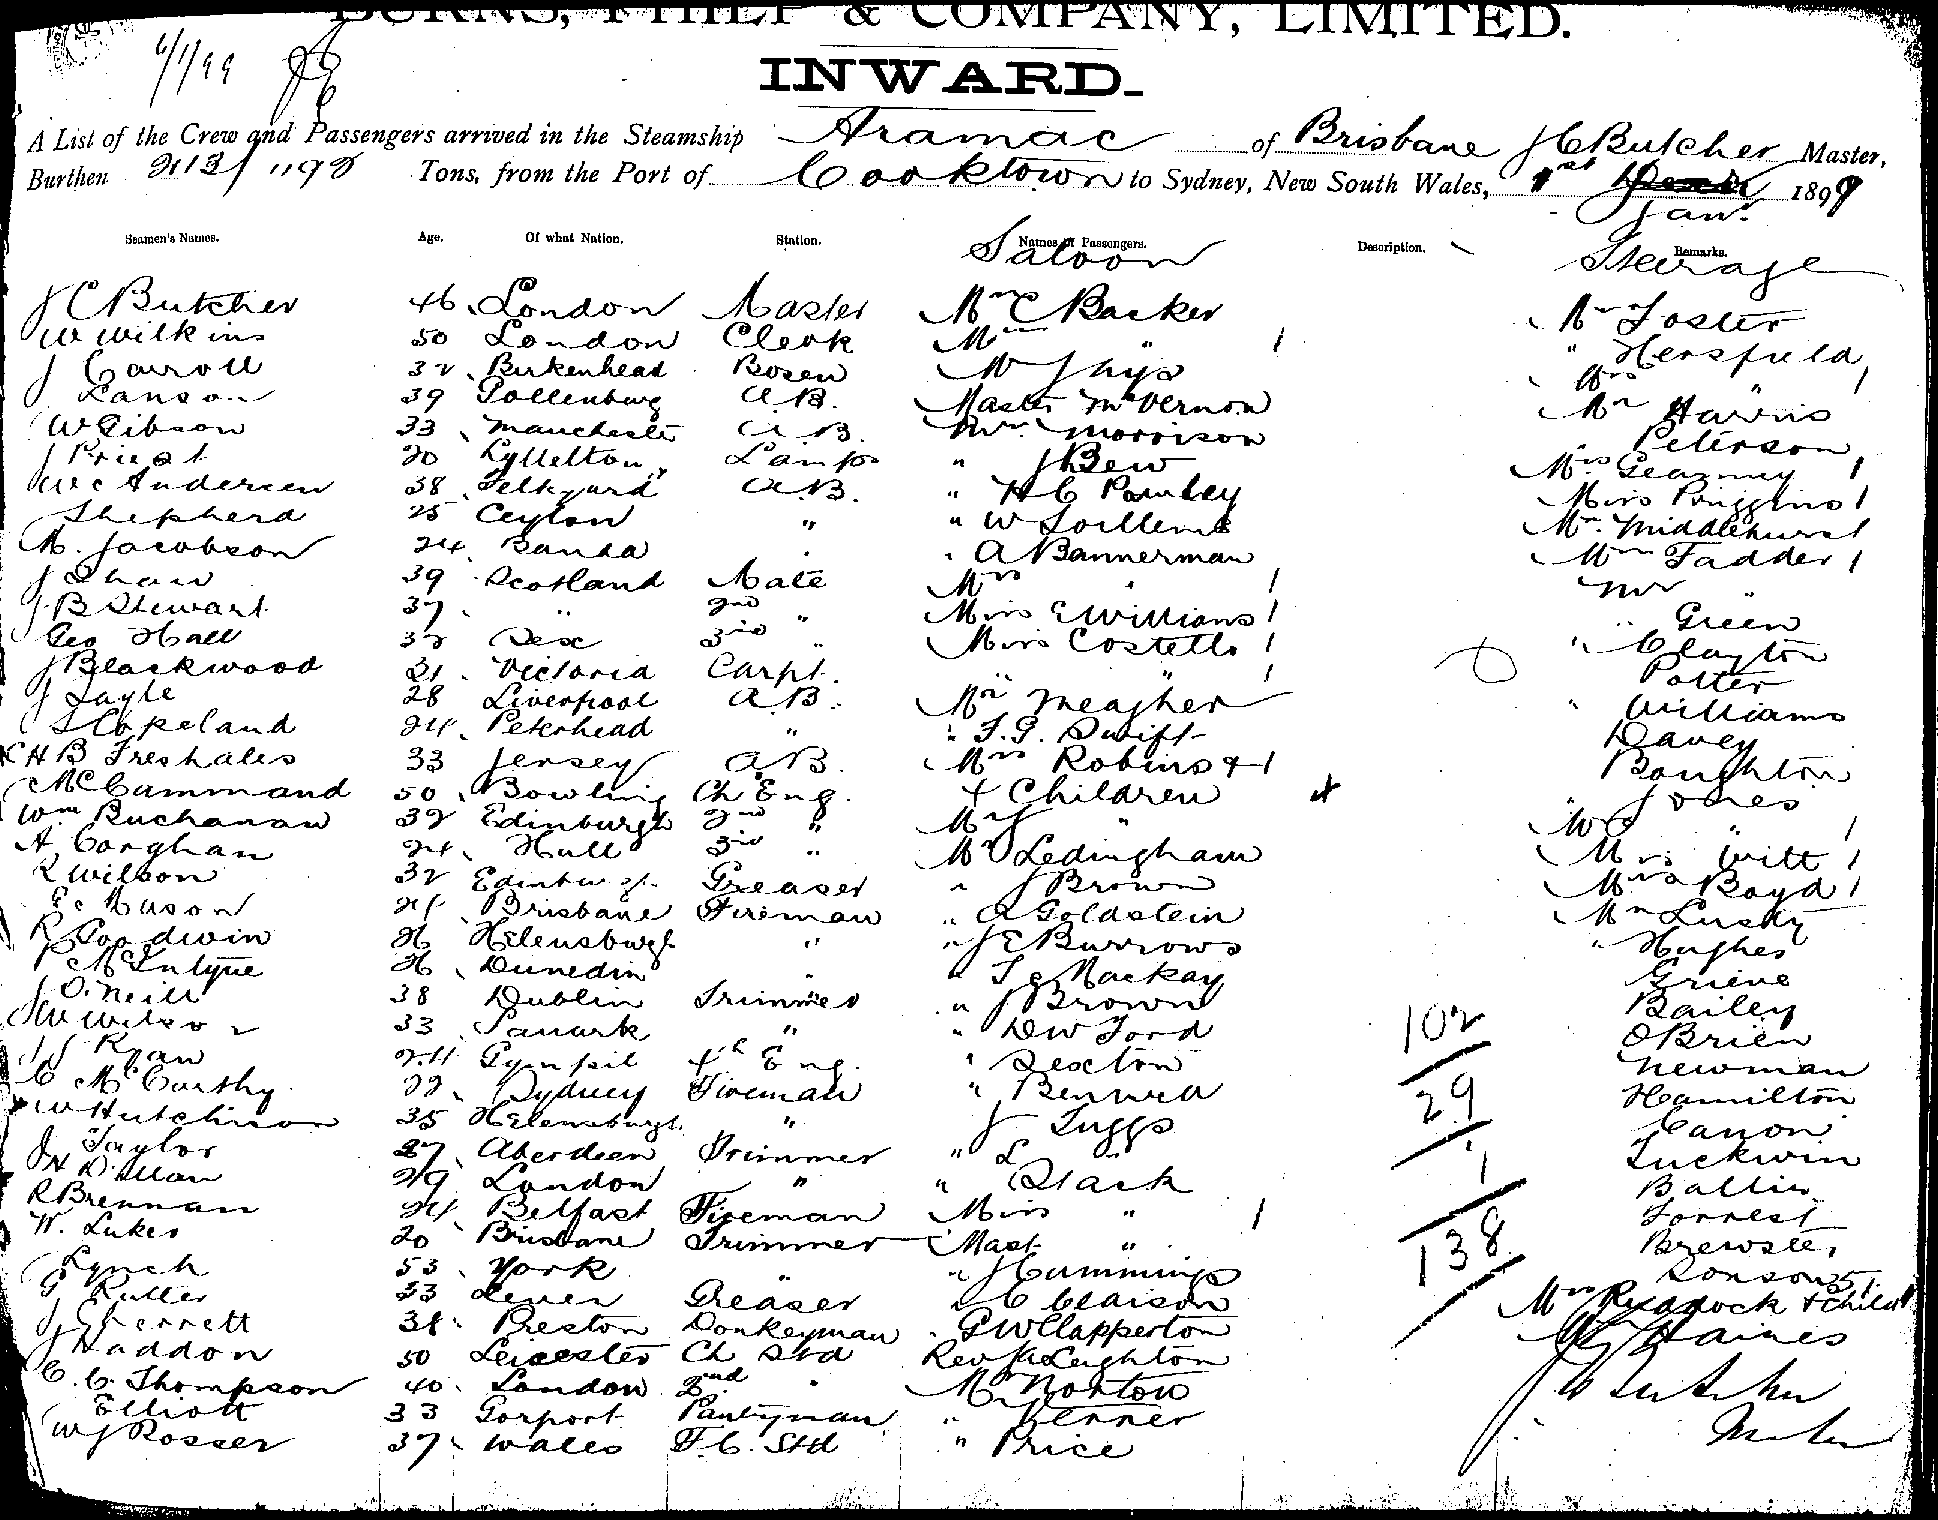 BURNS, PHILP & COMPANY, LIMITED.
6/1/99
INWARD.
A List of the Crew and Passengers arrived in the Steamship Aramac of Brisbane J C Butcher Master,
Burthen 2131/1198 Tons, from the Port of Cooktown to Sydney, New South Wales, 1st Jan. 1899
Seamen's Names. Age. Of what Nation. Station. Names of Passengers. Description. Remarks.
Saloon Steerage
J C Butcher 46 London Master Mr C Barker Mr Foster
W Wilkins 50 London Clerk Mrs " 1 " Hersfield
J Carroll 32 Birkenhead Bosen Mrs " 1
Lanson 39 A.B. Master McVernon Mr Harris
W Gibson 33 Manchester A.B. Mr Morrison Peterson
J Priest 20 Lyttelton Lamps " J Bew Mrs Gearney 1
Andersen 38 A.B. " H C Miss Priggins 1
Shepherd 25 Ceylon " " W Mr. Middlehurst
M. Jacobson 24 Banka " A Bannerman Mrs Fadder 1
J Shaw 39 Scotland Mate Mrs " 1 Mr "
J B Stewart 37 " 2nd " Miss E Williams 1 " Green
Geo Hall 32 3rd " Miss Costello 1 " Clayton
J Blackwood 31 Victoria Carpt. " " 1 Potter
J Layle 28 Liverpool A.B. Mr Meagher " Williams
Copeland 24 Peterhead " " F. G. Swift Davey
H B Freshales 33 Jersey A B. Mrs Robins & 1 Boughton
McCammand 50 Bowling Ch Eng. 4 Children 4 " Jones
Wm Buchanan 32 Edinburgh 2nd " Mr J " Mrs " 1
A Corghan 24 Hull 3rd " Mr Ledingham Mrs Witt 1
R Wilson 32 Edinburgh Greaser " J Brown Mrs Boyd 1
E Mason 24 Brisbane Fireman " A Goldstein Mr Lusky
R Goodwin 26 Helensburgh " " J E Burrows " Hughes
P McIntyre 26 Dunedin " " Mackay Grieve
J O'Neill 38 Dublin Trimmer " J Brown Bailey
W Wilson 33 Lanark " " D W Ford 102 O'Brien
J Ryan 24 Gympie 4th Eng. " Sexton Newman
C McCarthy 22 Sydney Fireman " Bennett 29 Hamilton
W Hutchinson 35 Helensburgh " J Tuggs Canon
J Taylor 27 Aberdeen Trimmer " L " 1 Luckwin
H Dillan 29 London " " Stack Ballin
R Brennan 24 Belfast Fireman Miss " 1 Forrest
W. Lukes 20 Brisbane Trimmer Mast. " 138 Brewster
Lynch 53 York " " J Cummings Ronson
G Rutter 33 Greaser " C Claison Mrs Ruddock & Child
J Sherrett 38 Preston Donkeyman " G W Clapperton Haines
J Haddon 50 Leicester Ch Std Rev Leighton
C. C. Thompson 40 London 2nd " Mr Norton J C Butcher
Elliott 33 Gosport Pantryman " Kenner Master
W J Rosser 37 Wales F. C. Std " Price